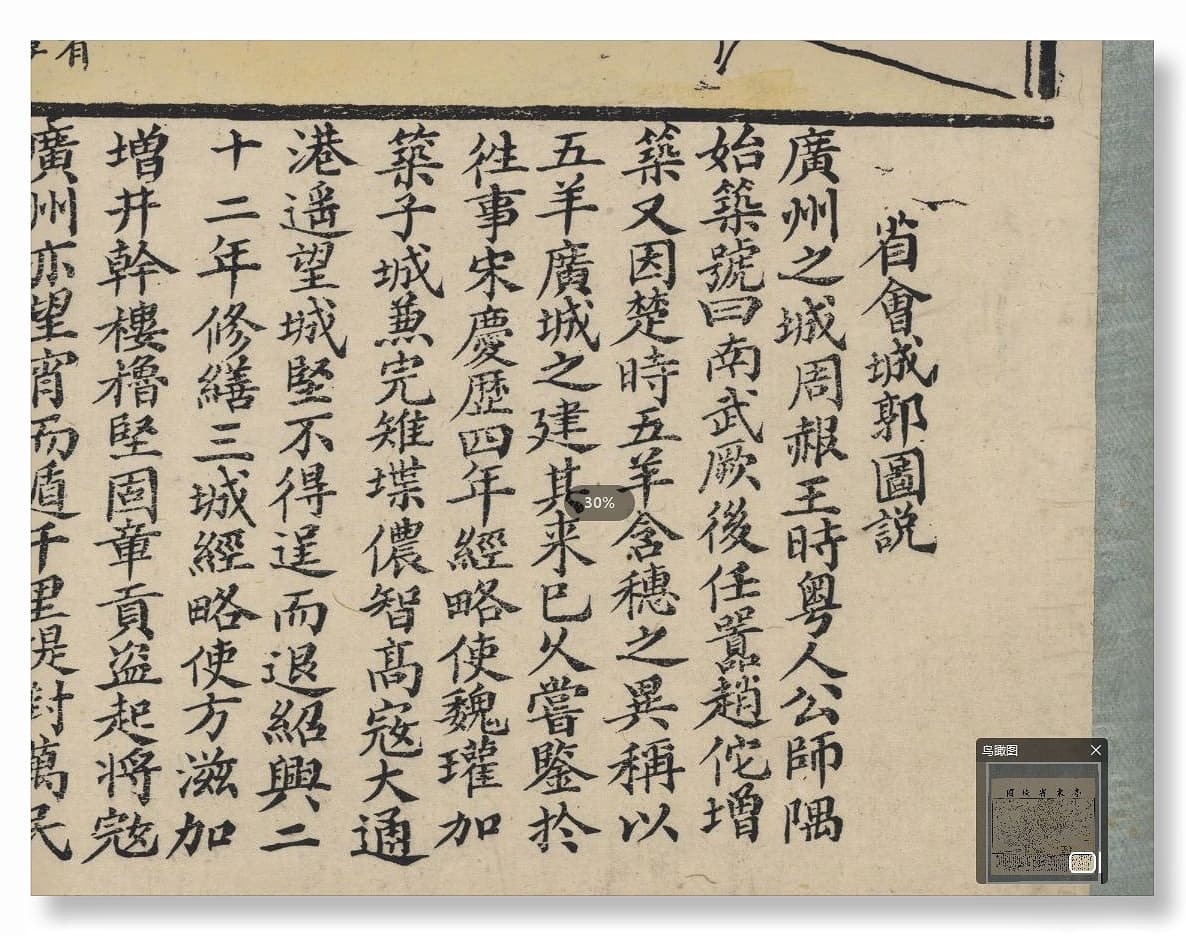 省會城郭圖説
廣州之城周赧王時粤人公師隅
始築號曰南武厥後任嚣趙佗增
築又因楚時五羊含穗之異稱以
五羊廣城之建其来已久嘗鑒於
徃事宋慶歷四年經略使魏瓘加
築子城兼完雉堞儂智髙寇大通
港遥望城堅不得逞而退紹興二
十二年修繕三城經略使方滋加
增井幹樓櫓堅固章貢盗起將寇
廣州亦望宵而遁千里萬民
有
30%
鸟瞰图